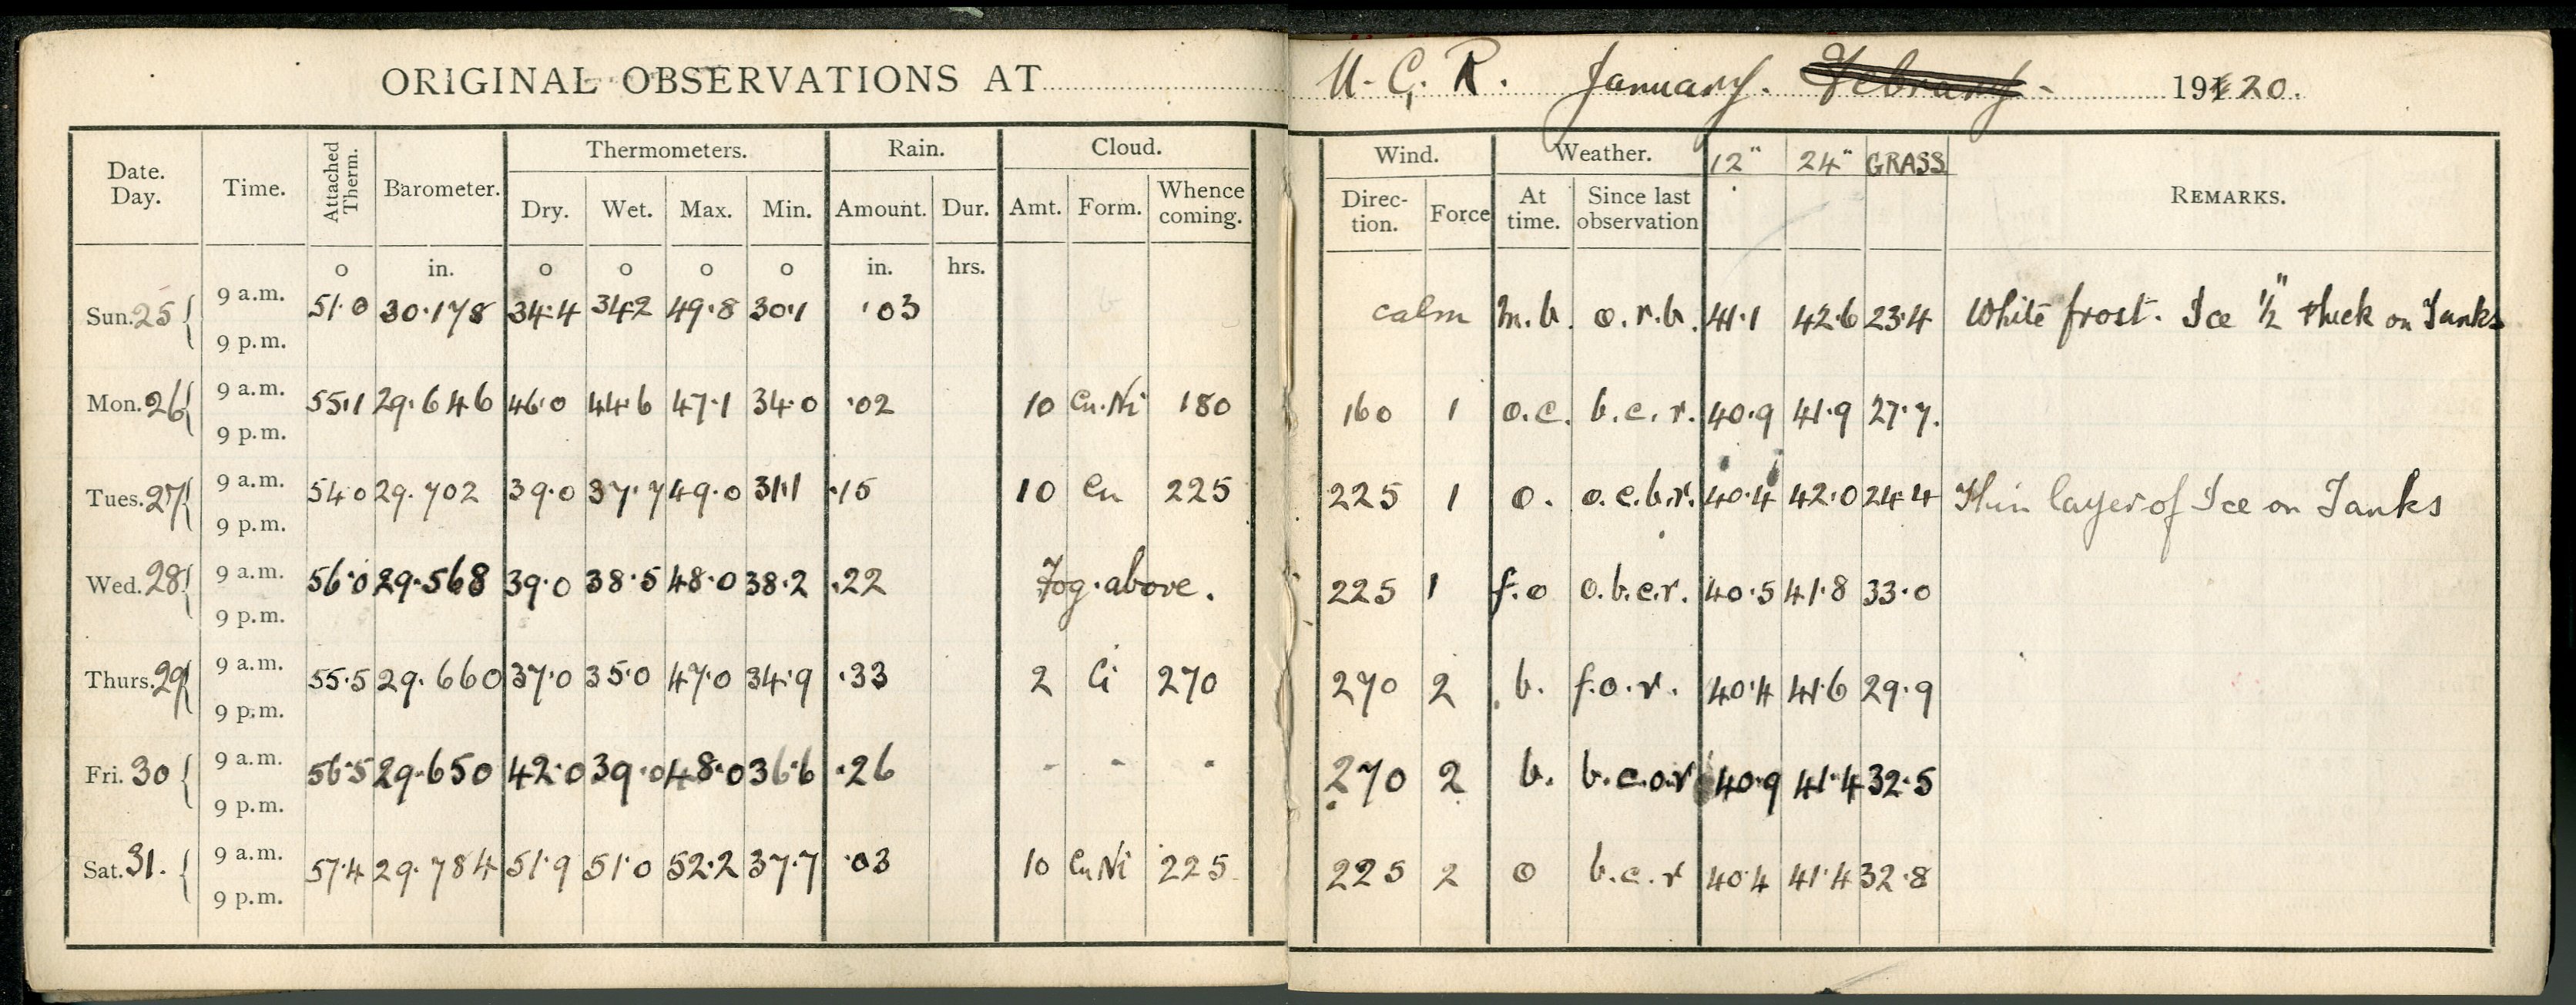 ORIGINAL OBSERVATIONS AT U. C. R. January. February. 191 20.
Date. Day. Time. Attached Therm. Barometer. Thermometers. Rain. Cloud. Wind. Weather. 12" 24" GRASS REMARKS.
Dry. Wet. Max. Min. Amount. Dur. Amt. Form. Whence coming. Direc-tion. Force At time. Since last observation
o in. o o o o in. hrs.
Sun. 25 9 a.m. 51.0 30.178 34.4 34.2 49.8 30.1 .03 calm m.b. o.r.b. 41.1 42.6 23.4 White frost. Ice ½" thick on Tanks
9 p.m.
Mon. 26 9 a.m. 55.1 29.646 46.0 44.6 47.1 34.0 .02 10 Cu.Ni 180 160 1 o.c. b.c.r. 40.9 41.9 27.7.
9 p.m.
Tues. 27 9 a.m. 54.0 29.702 39.0 37.7 49.0 31.1 .15 10 Cu 225 225 1 o. o.c.b.r. 40.4 42.0 24.4 Thin layer of Ice on Tanks
9 p.m.
Wed. 28 9 a.m. 56.0 29.568 39.0 38.5 48.0 38.2 .22 Fog above. 225 1 f.o o.b.c.r. 40.5 41.8 33.0
9 p.m.
Thurs. 29 9 a.m. 55.5 29.660 37.0 35.0 47.0 34.9 .33 2 Ci 270 270 2 b. f.o.r. 40.4 41.6 29.9
9 p.m.
Fri. 30 9 a.m. 56.5 29.650 42.0 39.0 48.0 36.6 .26 - - - 270 2 b. b.c.o.r 40.9 41.4 32.5
9 p.m.
Sat. 31. 9 a.m. 57.4 29.784 51.9 51.0 52.2 37.7 .03 10 CuNi 225 225 2 o b.c.r 40.4 41.4 32.8
9 p.m.